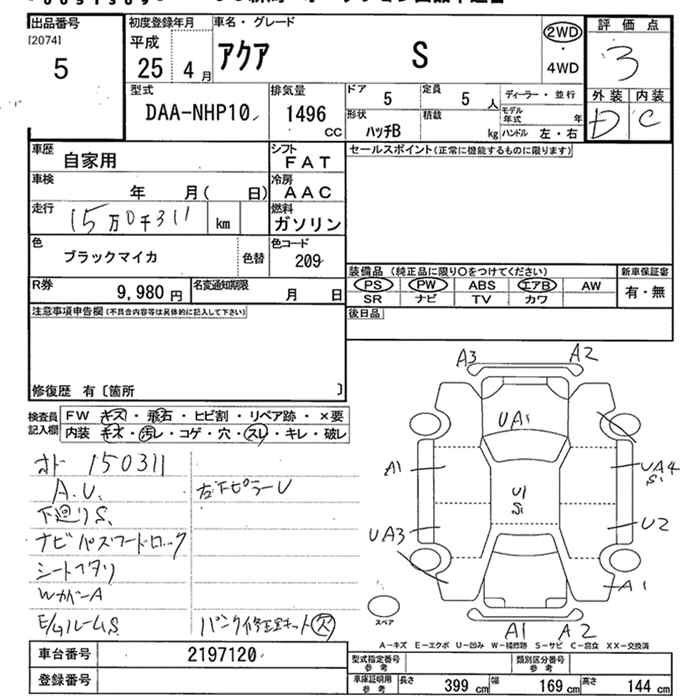 出品番号
[2074]
5
初度登録年月
平成
25 4月
車名・グレード
アクア S
2WD
・
4WD
評価点
3
外装 内装
D C
型式
DAA-NHP10
排気量
1496
CC
ドア
5
定員
5 人
ディーラー・並行
形状
ハッチB
積載
kg
モデル年式 年
ハンドル 左・右
車歴
自家用
シフト
FAT
セールスポイント(正常に機能するものに限ります)
車検
年 月( 日)
冷房
AAC
走行
15万0千311 km
燃料
ガソリン
色
ブラックマイカ
色替
色コード
209
装備品 (純正品に限り〇をつけてください)
新車保証書
PS PW ABS エアB AW
SR ナビ TV カワ
有・無
R券
9,980 円
名変通知期限
月 日
後日品
注意事項申告欄(不具合内容等は具体的に記入して下さい)
修復歴 有〔箇所 〕
検査員記入欄
FW キズ・飛石・ヒビ割・リペア跡・×要
内装 キズ・汚レ・コゲ・穴・スレ・キレ・破レ
オド 150311
A.U.
左下ピラーU
下廻りS.
ナビパスワードロック
シートヘタリ
WカバーA
E/GルームS
パンク修正キット欠
A3 A2
UA1
A1
UA4
S1
U1
S1
UA3
U2
A1
A1 A2
スペア
A-キズ E-エクボ U-凹み W-補修跡 S-サビ C-腐食 XX-交換済
車台番号
2197120
登録番号
型式指定番号
参考
類別区分番号
参考
車庫証明用
参考
長さ 399 cm
幅 169 cm
高さ 144 cm